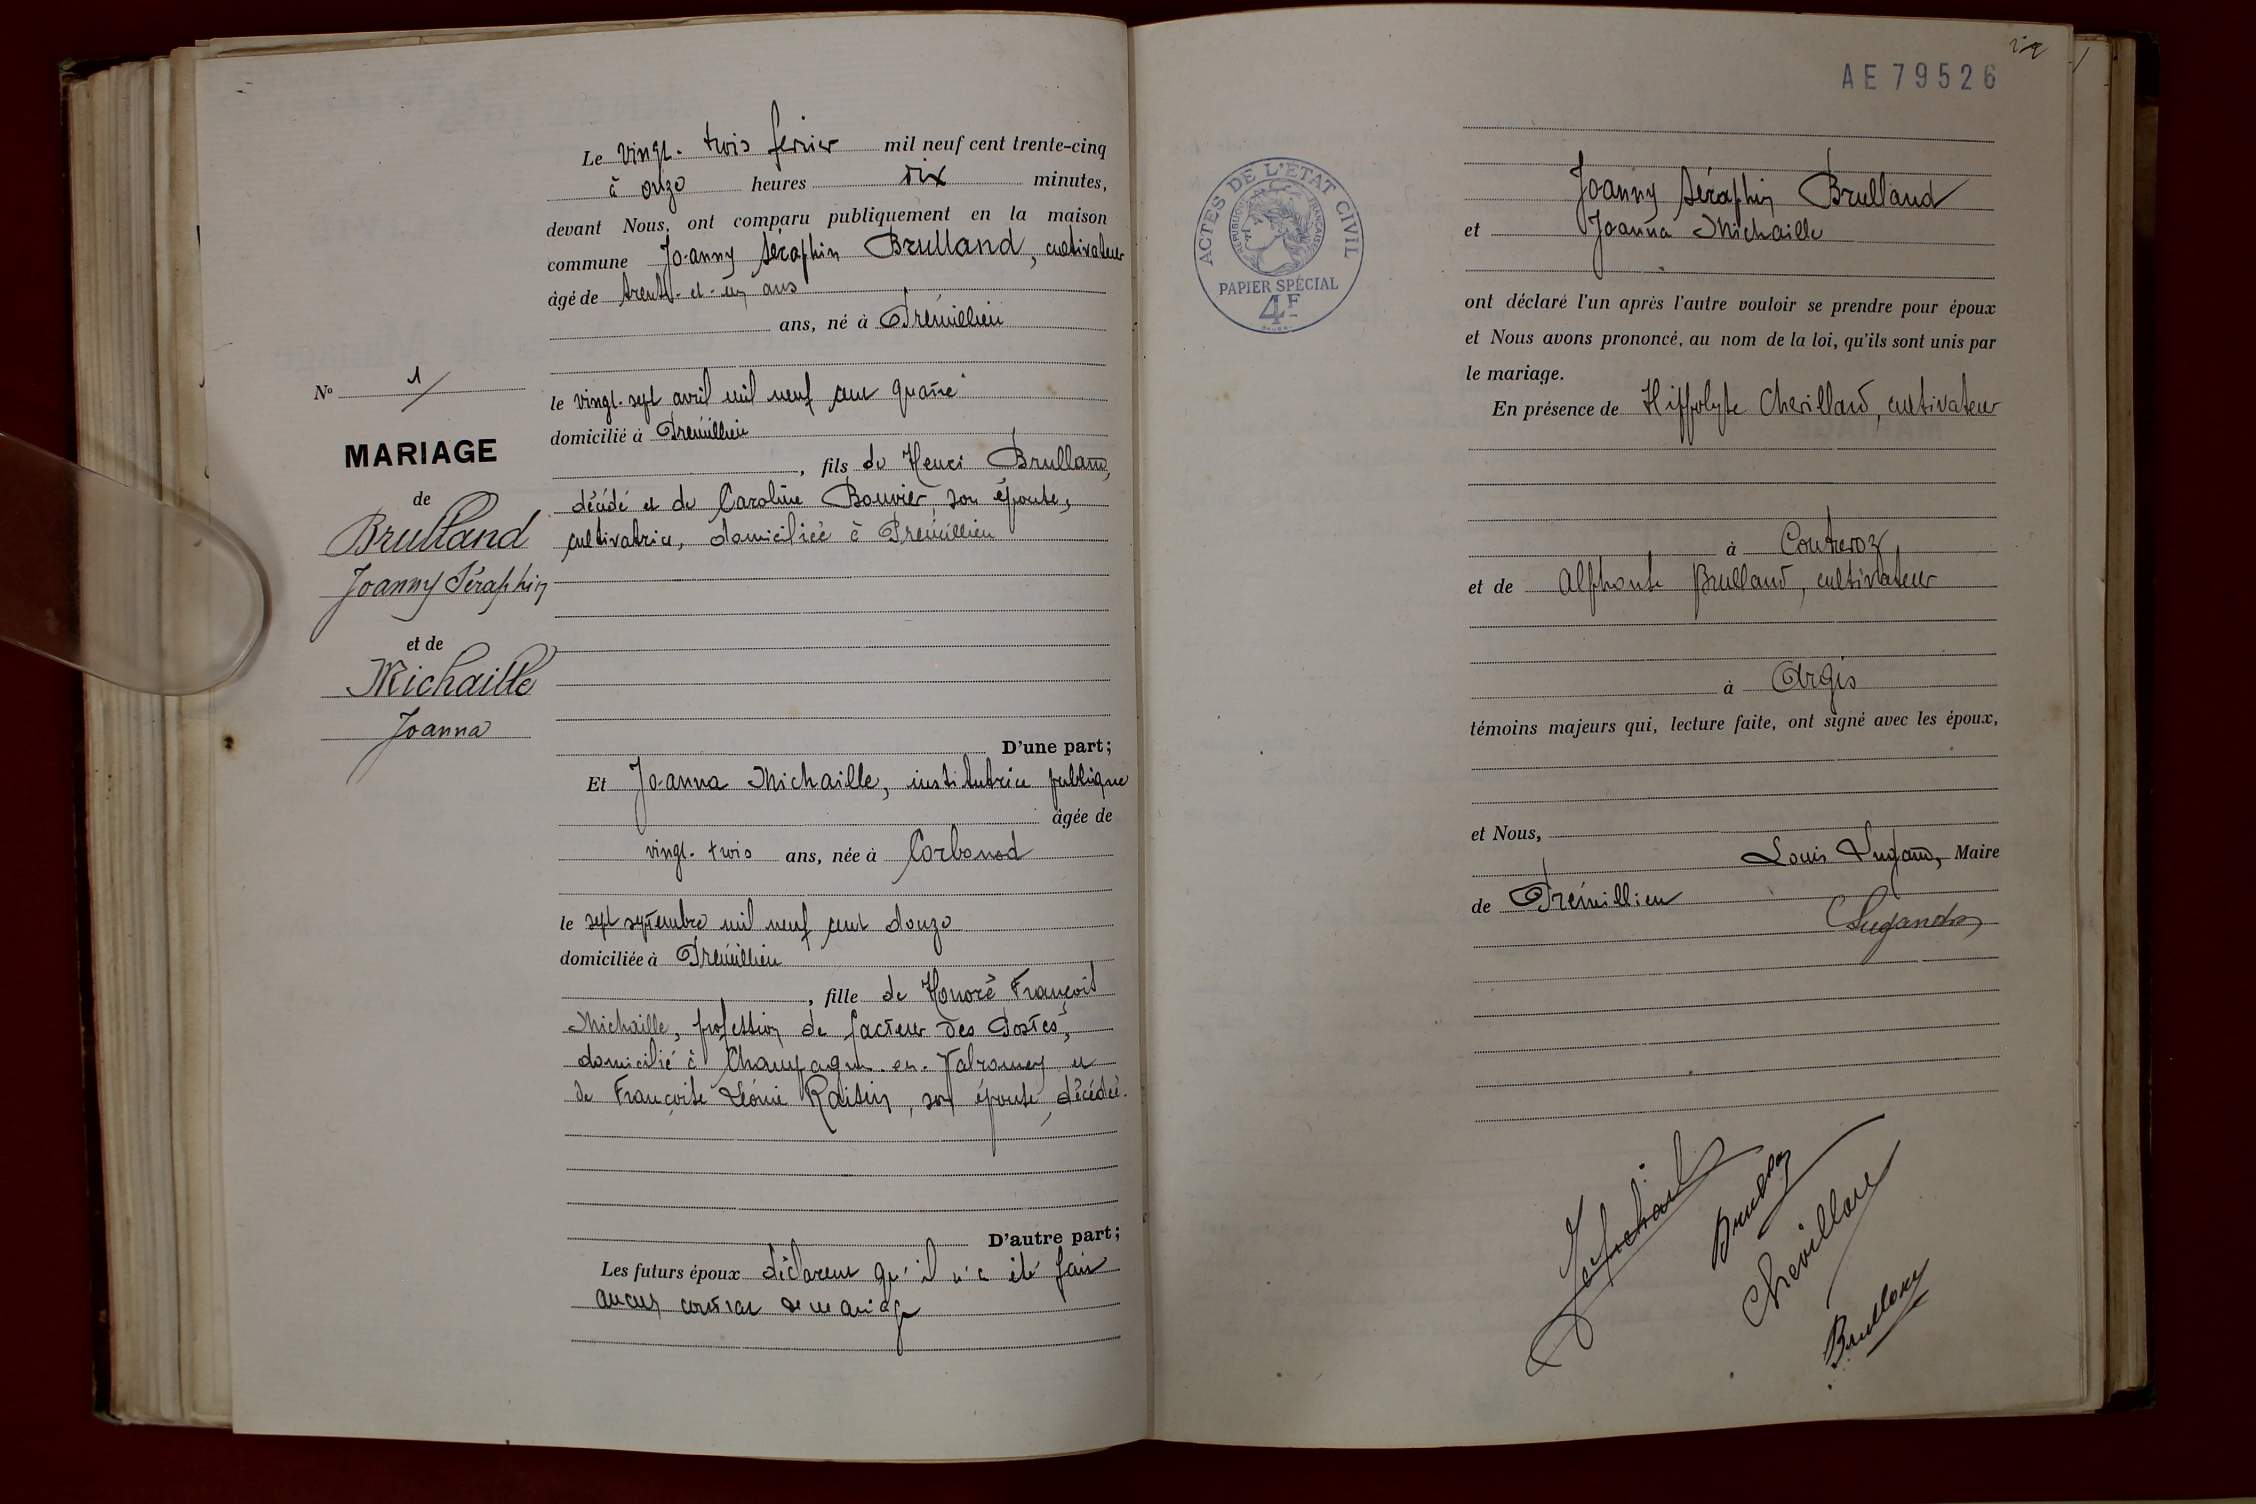 N° 1/
MARIAGE
de
Brulland
Joanny Séraphin
et de
Michaille
Joanna
Le vingt-trois février mil neuf cent trente-cinq
à onze heures dix minutes,
devant Nous, ont comparu publiquement en la maison
commune Joanny Séraphin Brulland, cultivateur
âgé de trente-et-un ans
ans, né à Prémillieu
le vingt-sept avril mil neuf cent quatre
domicilié à Prémillieu
, fils de Henri Brulland,
décédé et de Caroline Bouvier, son épouse,
cultivatrice, domiciliée à Prémillieu
D'une part;
Et Joanna Michaille, institutrice publique
âgée de
vingt-trois ans, née à Corbonod
le sept septembre mil neuf cent douze
domiciliée à Prémillieu
, fille de Honoré François
Michaille, profession de facteur des Postes,
domicilié à Champagne-en-Valromey et
de Françoise Léonie Raisin, son épouse, décédée.
D'autre part;
Les futurs époux déclarent qu'il n'a été fait
aucun contrat de mariage
AE 79526
ACTES DE L'ÉTAT CIVIL
RÉPUBLIQUE FRANÇAISE
PAPIER SPÉCIAL
4F
Joanny Séraphin Brulland
et Joanna Michaille
ont déclaré l'un après l'autre vouloir se prendre pour époux
et Nous avons prononcé, au nom de la loi, qu'ils sont unis par
le mariage.
En présence de Hippolyte Chevilland, cultivateur
à Contrevoz,
et de Alphonse Brulland, cultivateur
à Argis
témoins majeurs qui, lecture faite, ont signé avec les époux,
et Nous,
Louis Lugand, Maire
de Prémillieu
Lugand
Brulland
Brulland